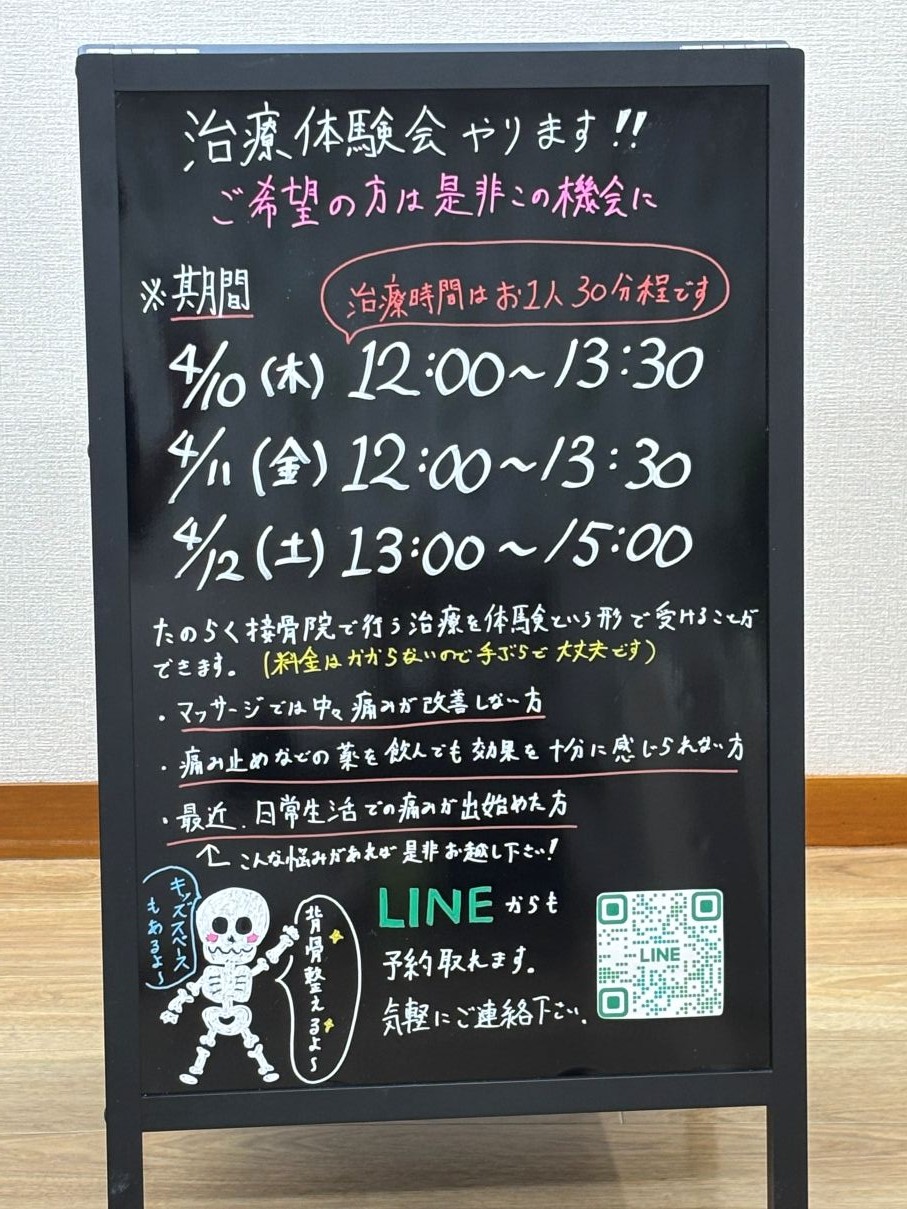 治療体験会やります!!
ご希望の方は是非この機会に
※期間
治療時間はお1人30分程です
4/10(木) 12:00~13:30
4/11(金) 12:00~13:30
4/12(土) 13:00~15:00
たのらく接骨院で行う治療を体験という形で受けることが
できます。(料金はかからないので手ぶらで大丈夫です)
・マッサージでは中々痛みが改善しない方
・痛み止めなどの薬を飲んでも効果を十分に感じられない方
・最近、日常生活での痛みが出始めた方
↑こんな悩みがあれば是非お越し下さい!
キッズスペース
もあるよ~
背骨整えるよ~
LINEからも
予約取れます。
気軽にご連絡下さい。
LINE